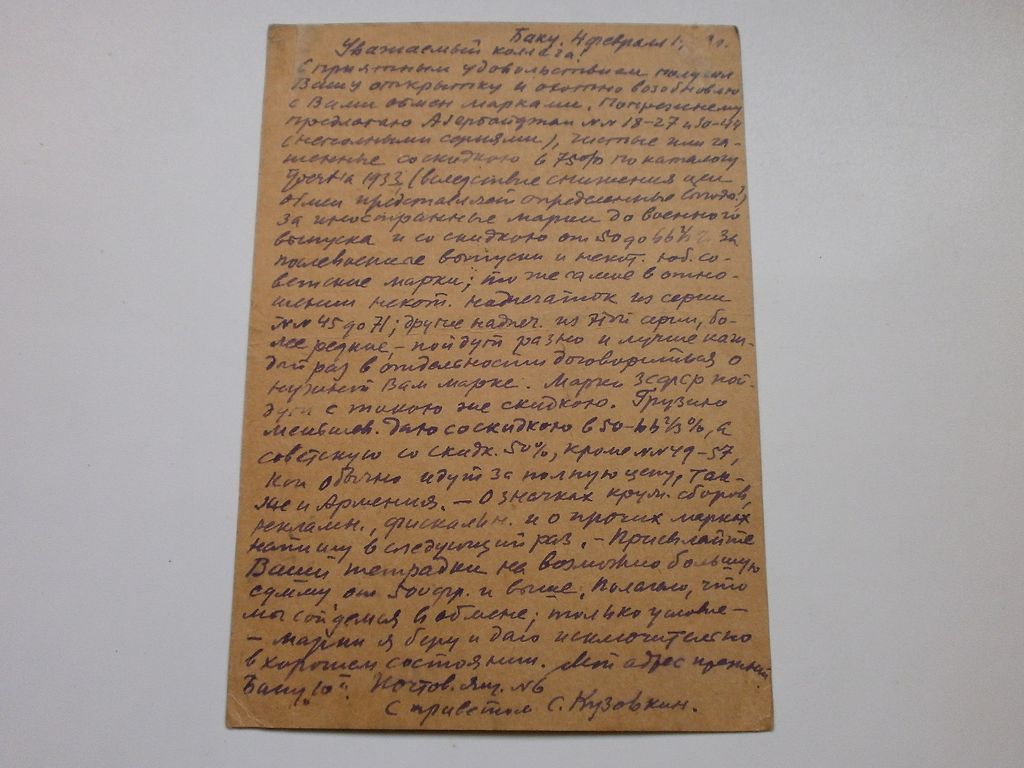 Баку, 4 февраля 1
Уважаемый коллега!
С приятным удовольствием получил
Вашу открытку и охотно возобновлю
с Вами обмен марками. Попрежнему
предлагаю Азербайджан №№ 18-27 и 30-44
(неполными сериями), чистые или га-
шенные со скидкою в 75% по каталогу
1933 (вследствие снижения цен
обмен представляет определенные выгоды!)
за иностранные марки до военного
выпуска и со скидкою от 50 до 66⅔% за
послевоенные выпуски и некот. юб. со-
ветские марки; то же самое в отно-
шении некот. надпечаток из серии
№№ 45 до 71; другие надпеч. из этой серии, бо-
лее редкие, - пойдут разно и лучше каж-
дый раз в отдельности договориться о
нужной Вам марке. Марки ЗСФСР пой-
дут с такою же скидкою. Грузию
меньшев. даю со скидкою в 50-66⅔%, а
советскую со скидк. 50%, кроме №№ 49-57,
кои обычно идут за полную цену, так-
же и Армения. — О значках круж. сборов,
реклам., фискальн. и о прочих марках
напишу в следующий раз. - Присылайте
Ваши тетрадки на возможно большую
сумму от 500 фр. и выше. Полагаю, что
мы сойдемся в обмене; только условие -
- марки я беру и даю исключительно
в хорошем состоянии. Мой адрес прежний:
Баку, 10 Почтов. ящ. №6
С приветом С. Кузовкин.